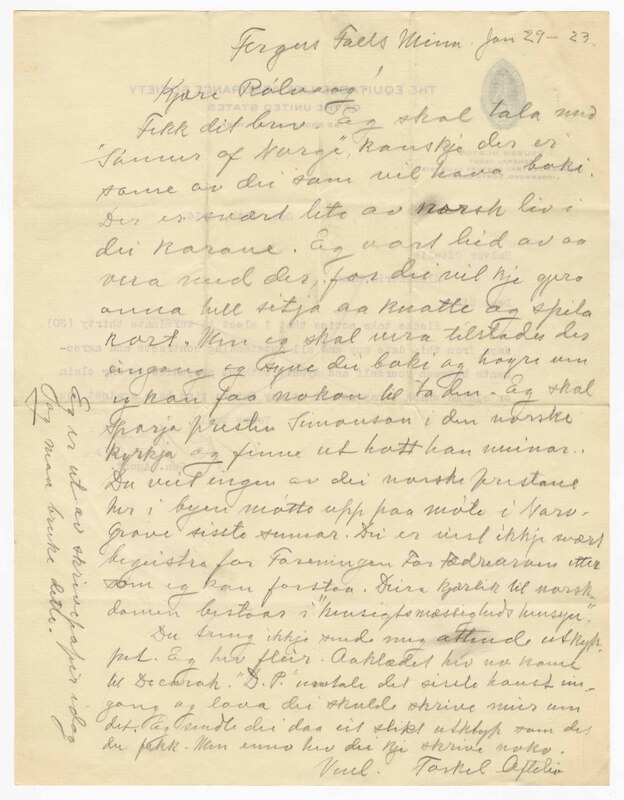 Fergus Falls Minn. Jan 29 - 23.
Kjære Rölvaag!
Fekk dit brev. Eg skal tala med
"Sönner af Norge", kanskje der er
some av dei som vil hava boki.
Der er svært lite av norsk liv i
dei karane. Eg vart leid av aa
vera med der, for dei vil kje gjera
anna hell setja aa knatte og spila
kort. Men eg skal vera tilstades der
eingang og syne dei boki og höyre um
eg kan faa nokon til ta den. Eg skal
sporja presten Simonson i den norske
kyrkja og finne ut hott han meinar.
Du veit ingen av dei norske prestane
her i byen mötte upp paa möte i Narv-
Grove sisste sumar. Dei er visst ikkje svært
begeistra for Foreningen For Fædrearven etter
som eg kan forstaa. Deira kjærleik til norsk-
domen bestaar i "hensigtsmæssigheds hensyn".
Du trung ikkje sende meg attende utklyp-
pet. Eg hev fleir. Aaklædet hev no kome
til Decorah. "D.P." umtala det sisste haust ein-
gang og lova dei skulde skrive meir um
det. Eg sendte dei daa eit slikt utklyp som det
du fekk. Men enno hev dei kje skrive noko.
Venl. Torkel Oftelie
Eg er ut av skrivepapir idag
Jeg maa bruke dette.
THE EQUITABLE LIFE ASSURANCE SOCIETY
OF THE UNITED STATES